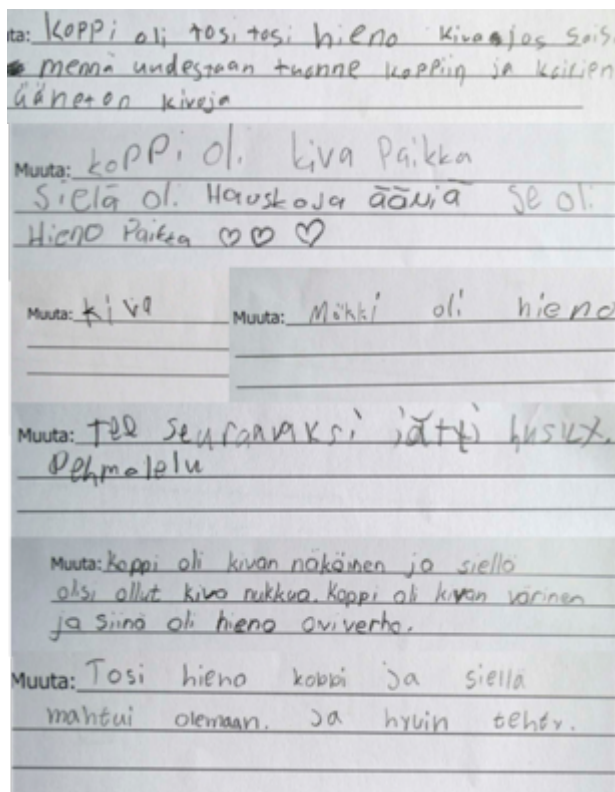 ta: Koppi oli tosi tosi hieno Kiva jos sais
mennä uudestaan tuonne koppiin ja
kiveja
Muuta: koppi oli kiva Paikka
Sielä oli Hauskoja ääniä se oli
Hieno Paikka ♡♡ ♡
Muuta: kiva
Muuta: Mökki oli hieno
Muuta: Tee seuraavaksi jätti
Pehmolelu
Muuta: Koppi oli kivan näköinen ja siellä
olisi ollut kiva nukkua. Koppi oli kivan värinen
ja siinä oli hieno oviverho.
Muuta: Tosi hieno koppi ja siellä
mahtui olemaan. Ja hyvin tehty.